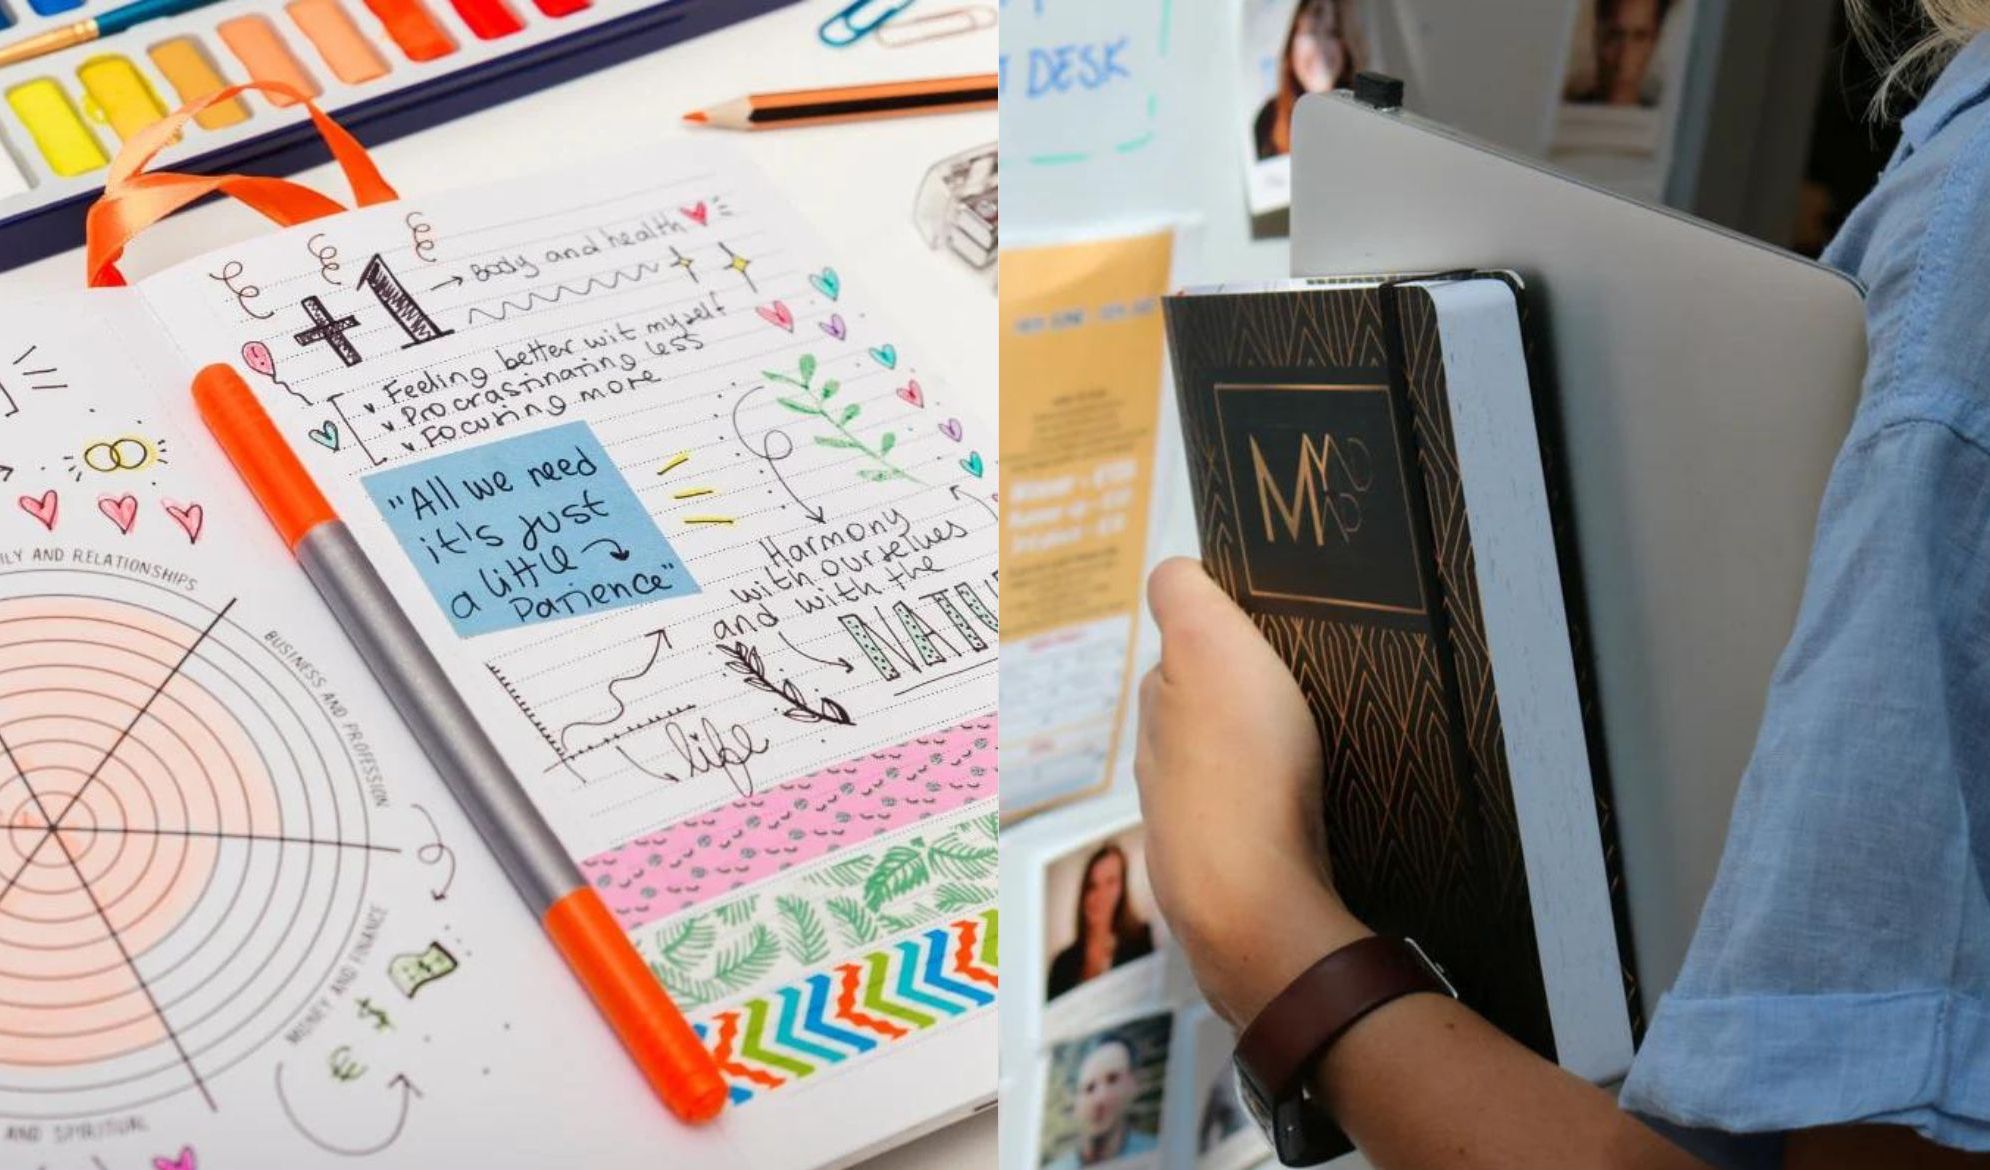 +1
Body and health
Feeling better wit myself
Procrastinating less
Focusing more
"All we need
it's just
a little
Patience"
Harmony
with ourselves
and with the
life
AND RELATIONSHIPS
BUSINESS AND PROFESSION
MONEY AND FINANCE
AND SPIRITUAL
DESK
MY